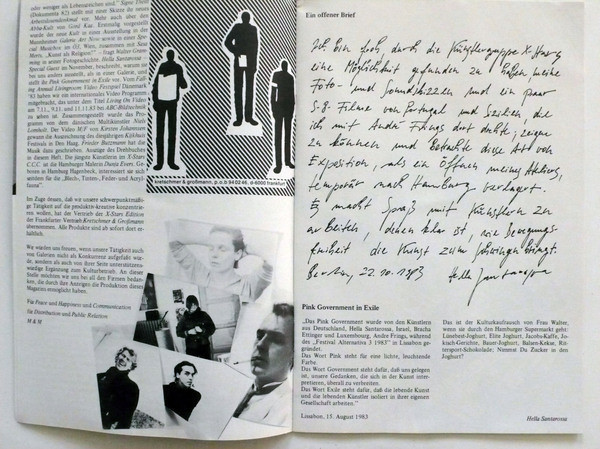 oder weniger als Lebenszeichen sind." Signe Theill
(Dokumenta #2) stellt mit einer Skizze die neuen
Arbeitslosendenkmal vor. Mehr auch über den
wurde der neue Kult in einer Ausstellung in der
Mannheimer Galerie Art Now sowie in einer Spe-
cial Masköco im Ö3, Wien, zusammen mit Song
Merx, „Kunst als Religion!" – fragt Walter Gramm-
ming in seiner Fotogeschichte. Hella Santarossa –
Special Guest im November, beschreibt, warum sie
bei uns anders ausstellt, als in einer Galerie, und
stellt die Pink Government in Exile vor. Vom Fall-
ing Annual Livingroom Video Festspiel Dänemark
'83 haben wir ein internationales Video Programm
mitgebracht, das unter dem Titel Living On Video
am 7.11., 9.11. und 11.11.83 bei ABC-Bildtechnik
zu sehen ist. Zusammengestellt wurde das Pro-
gramm von dem dänischen Multikünstler Niels
Lomholt. Der Video M/F von Kirsten Johannsen
gewann die Auszeichnung des diesjährigen Kijkhuis
Festivals in Den Haag. Frieder Butzmann hat die
Musik dazu geschrieben. Auszüge des Drehbuches
in diesem Heft. Die jüngste Künstlerin im X-Stars
C.C.C. ist die Hamburger Malerin Danja Evers. Ge-
boren in Hamburg Hagenbeck, interessiert, warum
sie für die „Blech-, Tinten-, Feder- und Acryl-
form".
Im Zuge dessen, daß wir unsere schwerpunktmäßi-
ge Tätigkeit auf die produktiv-kreative konzentrie-
ren wollen, hat der Vertrieb des X-Stars Edition
der Frankfurter Vertrieb Kretschmer & Großmann
übernommen. Alle Produktionen sind ab sofort dort er-
hältlich.
Wir würden uns freuen, wenn unsere Tätigkeit auch
von Galerien nicht als Konkurrenz aufgefaßt wür-
de, sondern als auch von ihrer Seite unterstützens-
würdige Ergänzung zum Kulturbetrieb. An dieser
Stelle möchten wir uns bei all den Firmen bedan-
ken, die durch das Anzeigen die Produktion dieses
Magazins ermöglicht haben.
Via Peace and Happyness and Communication
für Distribution und Public Relation
M & W
kretschmer & großmann, p.o.
6000 frankfurt
Ein offener Brief
Ich bin froh, durch die Künstlergruppe X-Stars
eine Möglichkeit gefunden zu haben, meine
Foto- und Soundskizzen und ein paar
S-8-Filme von Portugal und Sizilien, die
ich mit André Frings dort drehte, zeigen
zu können und betrachte diese Art von
Exposition, als ein Öffnen meines Ateliers,
temporär nach Hamburg verlagert.
Es macht Spaß mit Künstlern zu
arbeiten, denen klar ist, wie Bewegungs-
freiheit die Kunst zum Schwingen bringt.
Berlin, 22.10.1983 Hella Santarossa
Pink Government in Exile
„Das Pink Government wurde von den Künstlern
aus Deutschland, Hella Santarossa, Israel, Bracha
Ettinger und Luxembourg, Andre Frings, während
des „Festival Alternativa 3 1983" in Lissabon ge-
gründet.
Das Wort Pink steht für eine lichte, leuchtende
Farbe.
Das Wort Government steht dafür, daß uns gelegen
ist, unsere Gedanken, die sich in der Kunst inter-
pretieren, überall zu verbreiten.
Das Wort Exile steht dafür, daß die lebende Kunst
und die lebenden Künstler isoliert in ihrer eigenen
Gesellschaft arbeiten."
Lissabon, 15. August 1983
Das ist der Kulturkaufrausch von Frau Walter,
wenn sie durch den Hamburger Supermarkt geht:
Lünebest-Joghurt, Elite Joghurt, Jacobs-Kaffe, Jo-
kisch-Gerichte, Bauer-Joghurt, Balsen-Kekse, Rit-
tersport-Schokolade; Nimmst Du Zucker in den
Joghurt?
Hella Santarossa